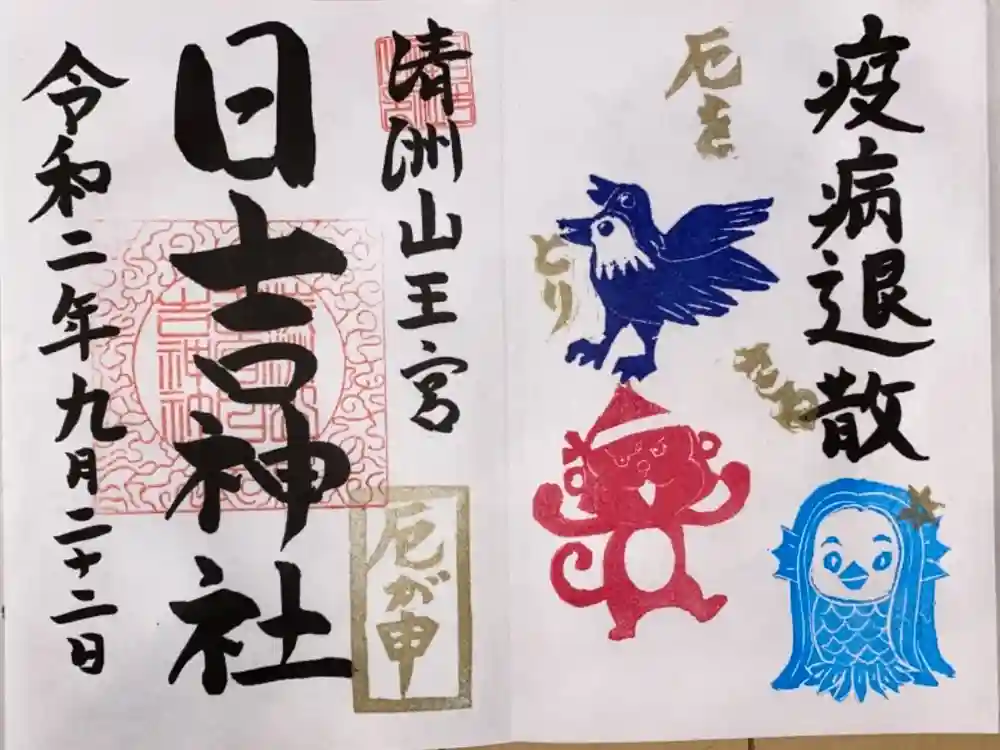 疫病退散
厄を
とり
清洲山王宮
厄が申
日吉神社
令和二年九月二十二日